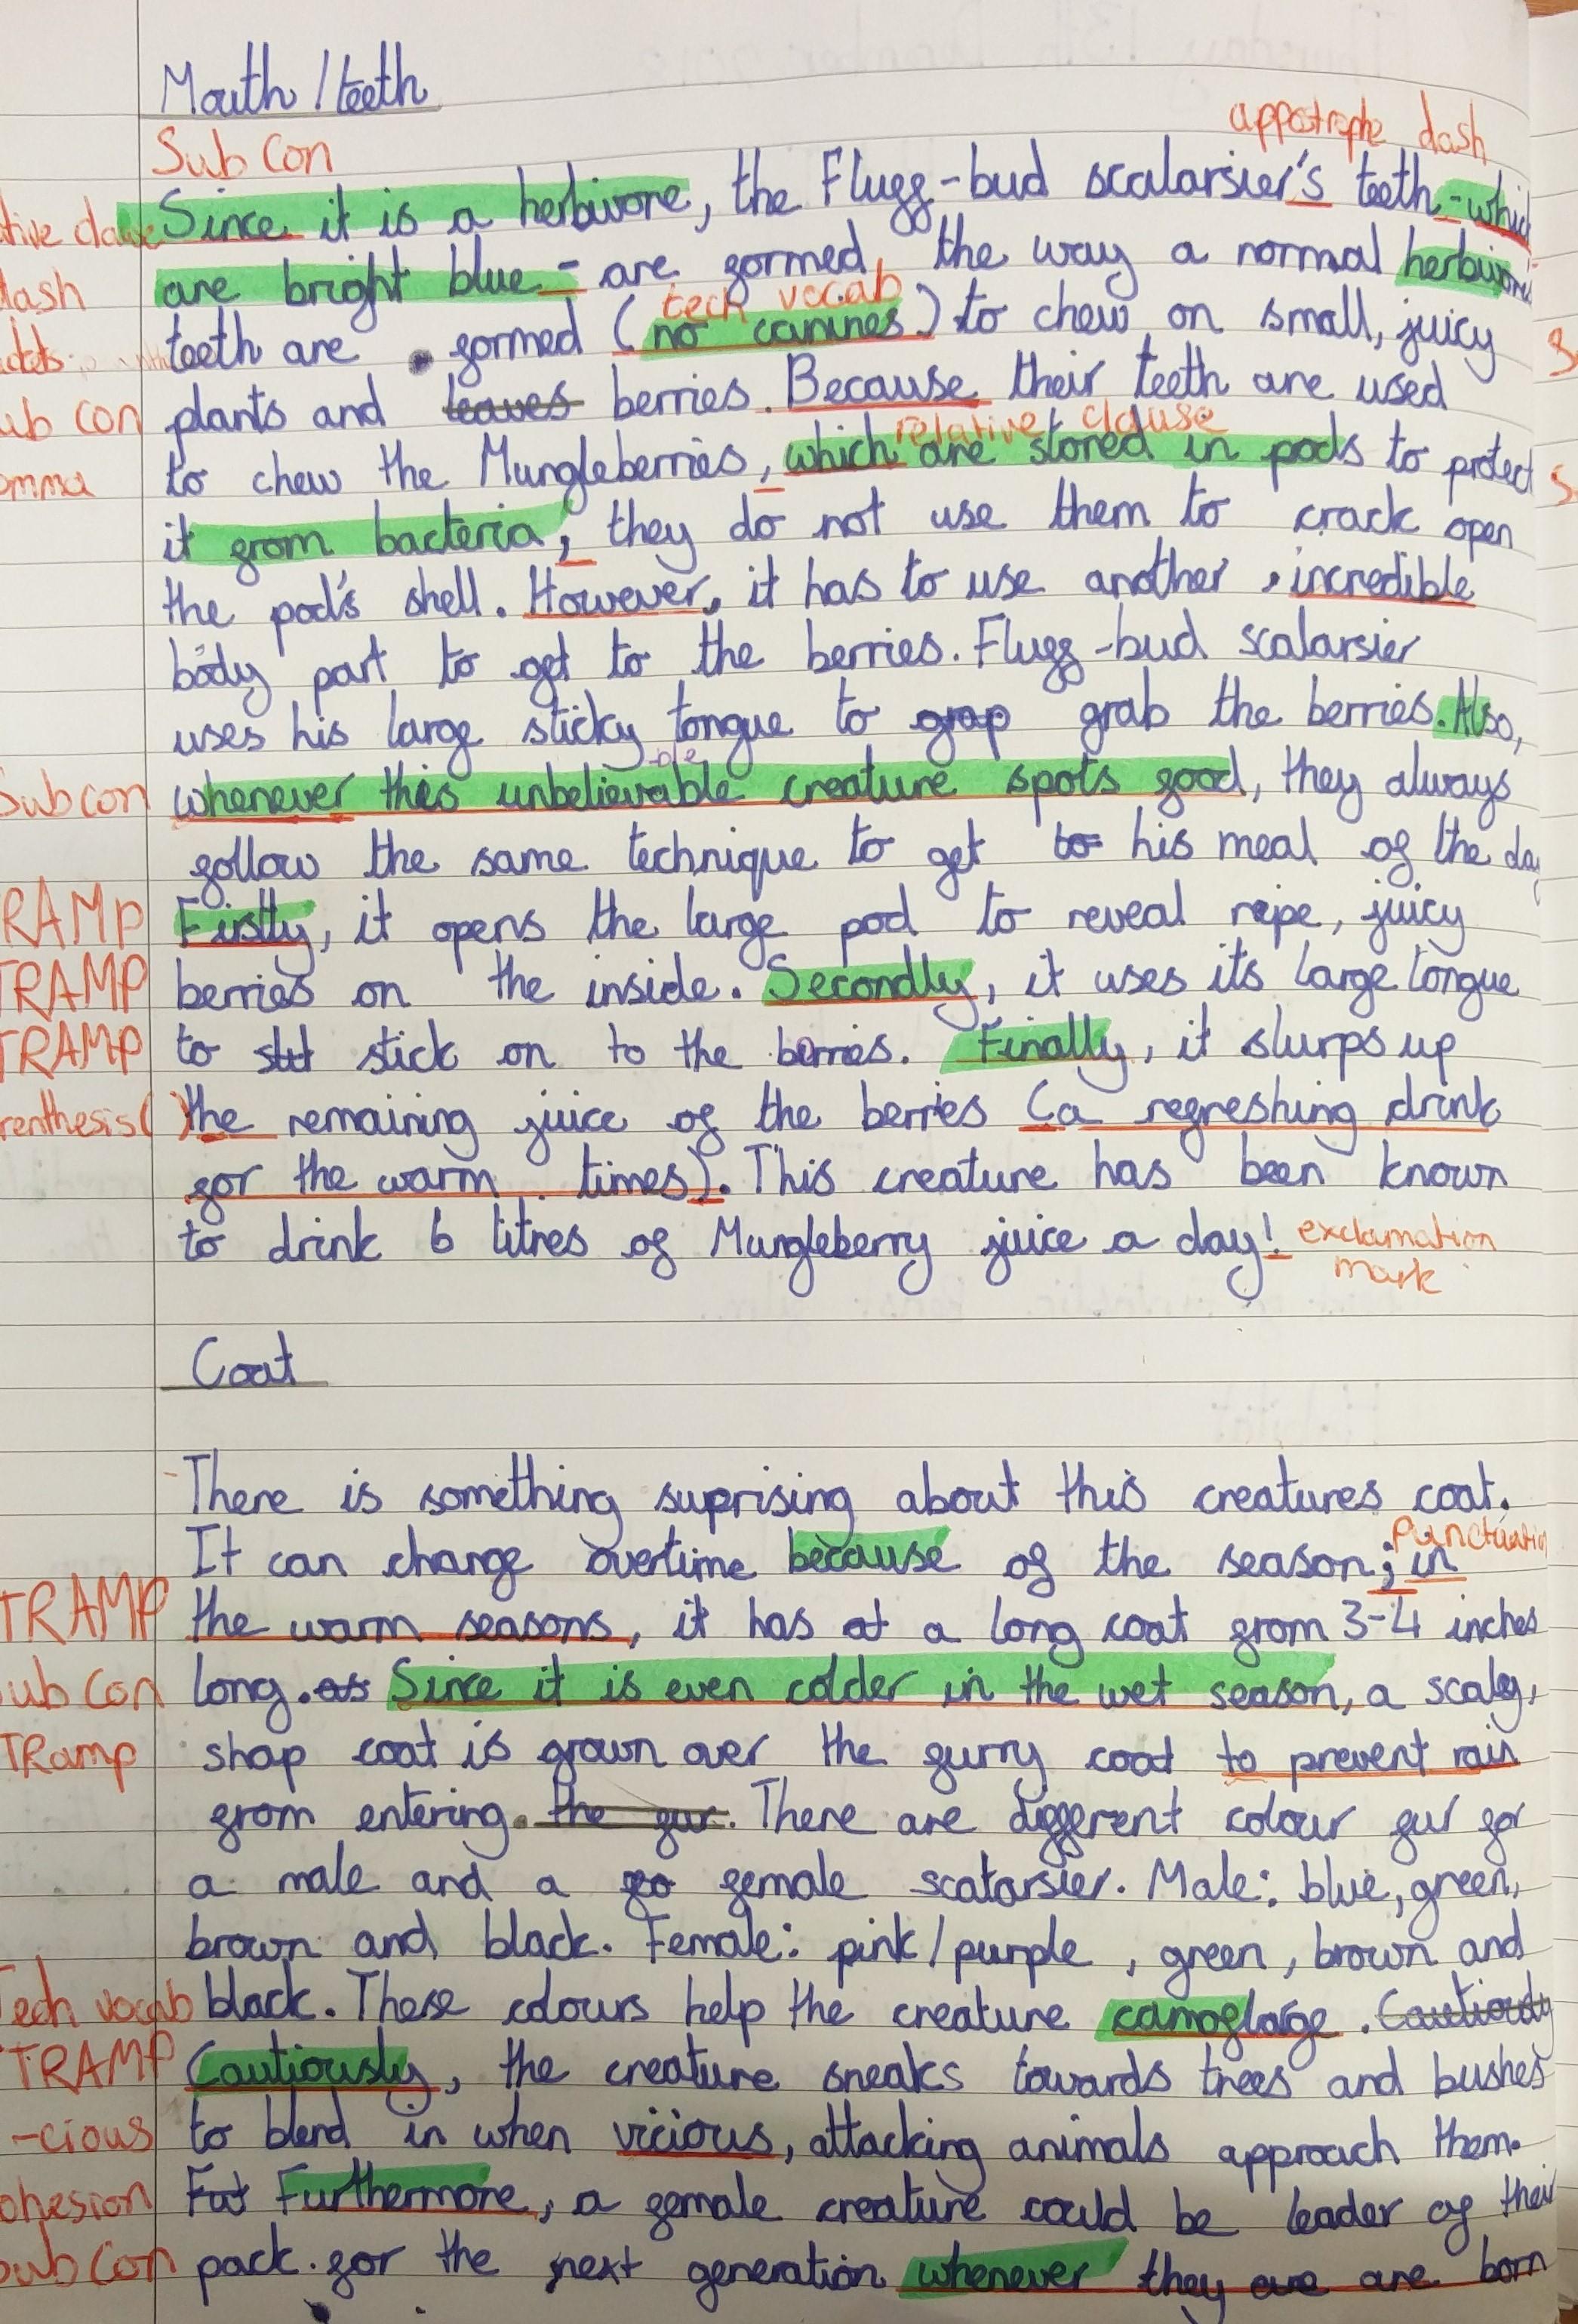 Mouth/teeth
appostrophe dash
Sub Con
Since it is a herbivore, the Flugg-bud scalarsier's teeth - which
are bright blue - are formed the way a normal herbivore
dash
tech vocab
teeth are formed (no canines) to chew on small, juicy
sub con plants and leaves berries. Because their teeth are used
relative clause
comma to chew the Mungleberries, which are stored in pods to protect
it from bacteria, they do not use them to crack open
the pod's shell. However, it has to use another, incredible
body part to get to the berries. Flugg-bud scalarsier
uses his large sticky tongue to grap grab the berries. Also,
able
Sub con whenever this unbelievable creature spots food, they always
follow the same technique to get to his meal of the day
TRAMP Firstly, it opens the large pod to reveal ripe, juicy
TRAMP berries on the inside. Secondly, it uses its large tongue
TRAMP to stick on to the berries. Finally, it slurps up
parenthesis ( ) the remaining juice of the berries (a refreshing drink
for the warm times). This creature has been known
to drink 6 litres of Mungleberry juice a day! exclamation
mark
Coat
There is something suprising about this creatures coat.
Punctuation
It can change overtime because of the season; in
TRAMP the warm seasons, it has at a long coat from 3-4 inches
Sub Con long. as Since it is even colder in the wet season, a scaley,
TRamp shap coat is grown over the furry coat to prevent rain
from entering. the fur. There are different colour fur for
a male and a fo female scatarsier. Male: blue, green,
brown and black. Female: pink/purple, green, brown and
Tech vocab black. These colours help the creature camoflarge. Cautiously
TRAMP Cautiously, the creature sneaks towards trees and bushes
-cious to blend in when vicious, attacking animals approach them.
cohesion Fut Furthermore, a female creature could be leader of their
sub Con pack. for the next generation whenever they are are born